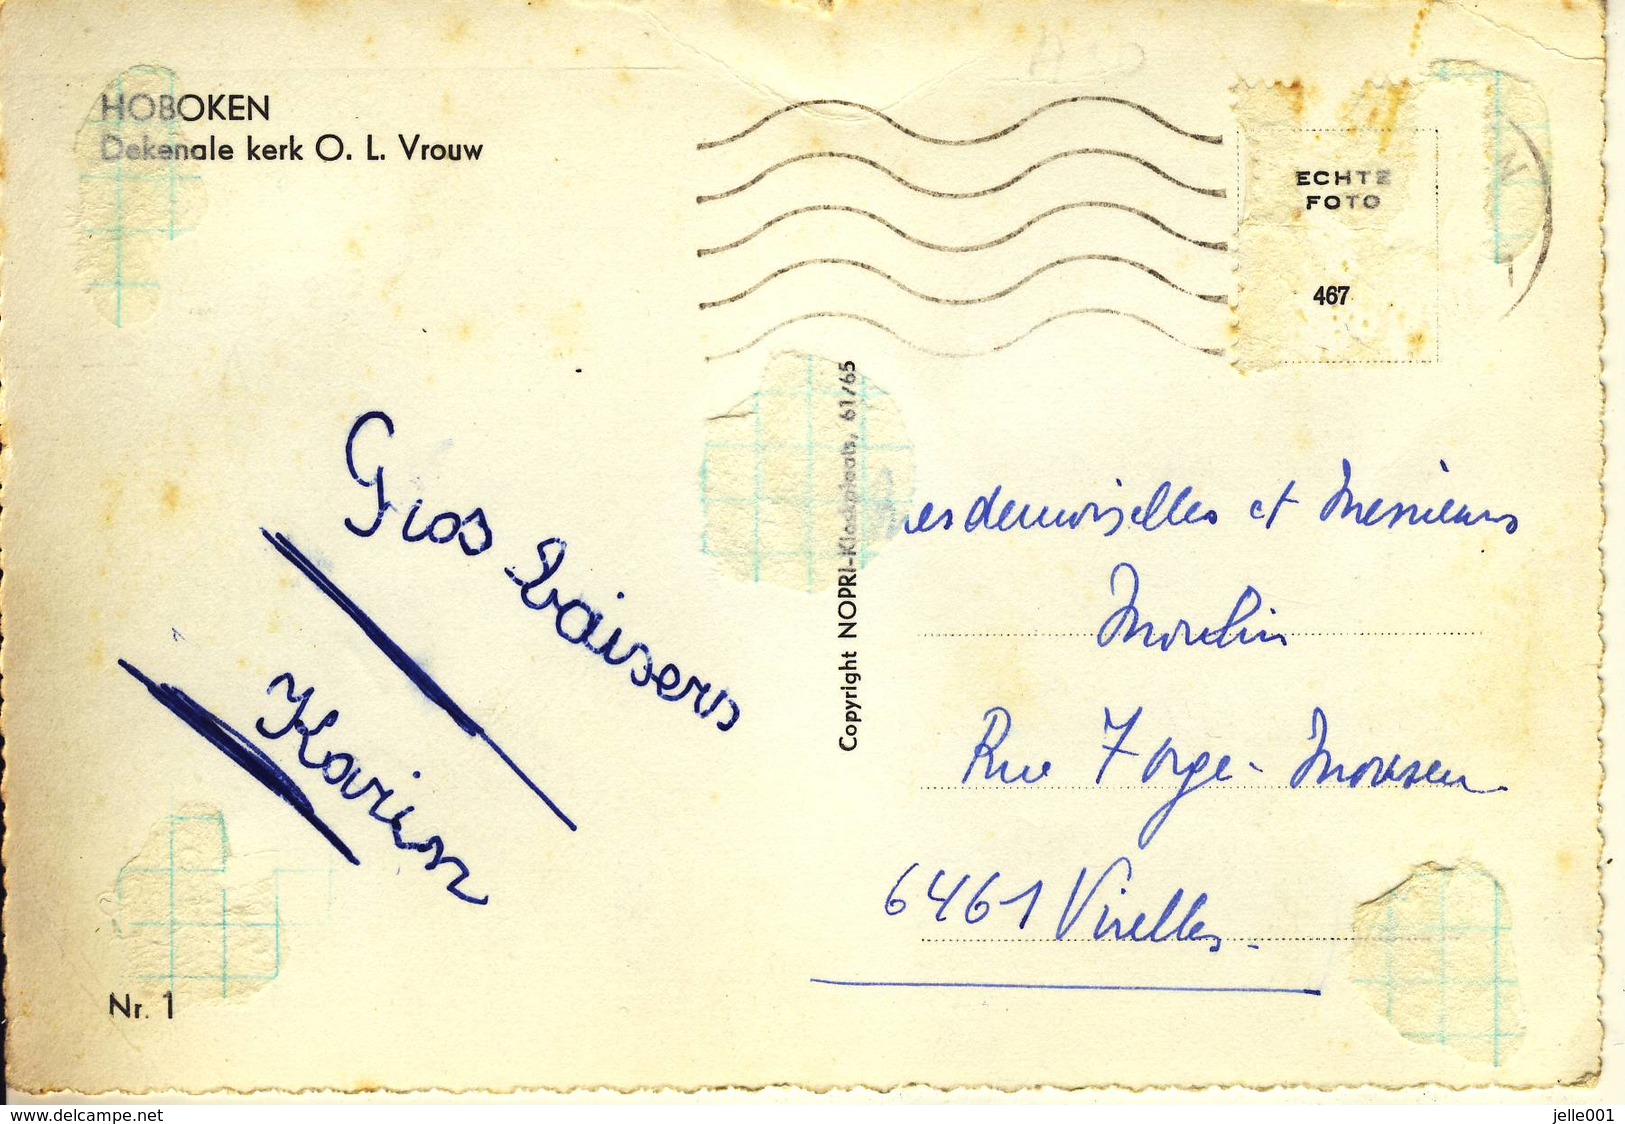 HOBOKEN
Dekenale kerk O. L. Vrouw
ECHTE
FOTO
467
Gros baisers
Karin
Copyright NOPRI-Kioskplaats, 61/65
esdemoiselles et Messieurs
Moulin
Rue Forge-
6461 Virelles.
Nr. 1
www.delcampe.net
jelle001